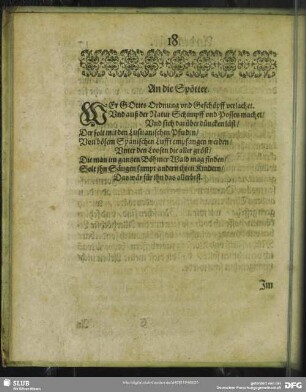 18.
An die Spötter.
WEr GOttes Ordnung vnd Geschöpff verlachet,
Vnd auß der Natur Schimpff vnd Possen machet,
Vnd sich darüber düncken läst/
Der solt mit den
Von bösem Spanischen Lufft empfangen werden/
Vnter den bösen die aller gröst/
Die man im gantzen Böhmer Wald mag finden/
Solt ihn Säugen sampt andern ihren Kindern/
Das wär für ihn das allerbest.
Im
SLUB
Wir führen Wissen.
gefördert von der
DFG